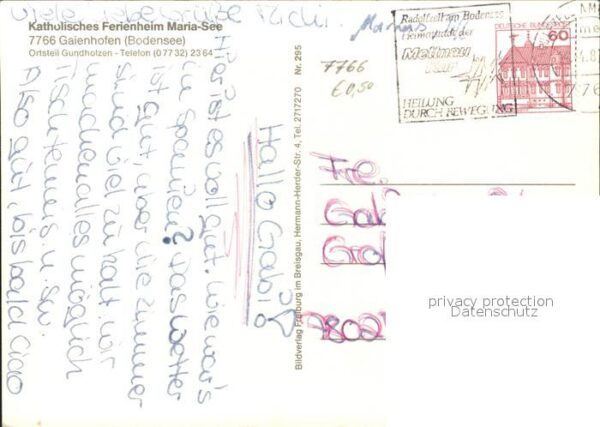 Katholisches Ferienheim Maria-See
7766 Gaienhofen (Bodensee)
Ortsteil Gundholzen - Telefon (0 77 32) 23 64
Hallo Gabi!
Hier ist es voll gut. Wie war's
in Spanien? Das Wetter
ist gut, aber die Zimmer
sind viel zu kalt. Wir
machen alles möglich
Tischtennis u.sw.
Also gut, bis bald Ciao
viele
Bildverlag Freiburg im Breisgau, Hermann-Herder-Str. 4, Tel. 2717270 Nr. 295
7766
€0,50
Radolfzell am Bodensee
Heimstätte der
Mettnau
Kur
HEILUNG
DURCH BEWEGUNG
DEUTSCHE BUNDESPOST
60
privacy protection
Datenschutz